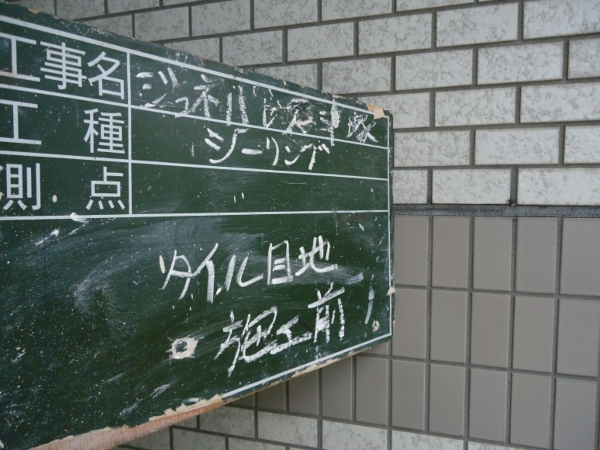 工事名 ジュネパレス
工種 シーリング
測点
タイル目地
施工前